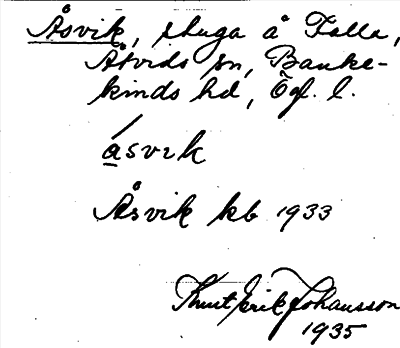 Åsvik, stuga å Falla,
Åtvids sn, Banke-
kinds hd, Ögl. l.
ásvɪk
Åsvik kb 1933
Knut Erik Johansson
1935